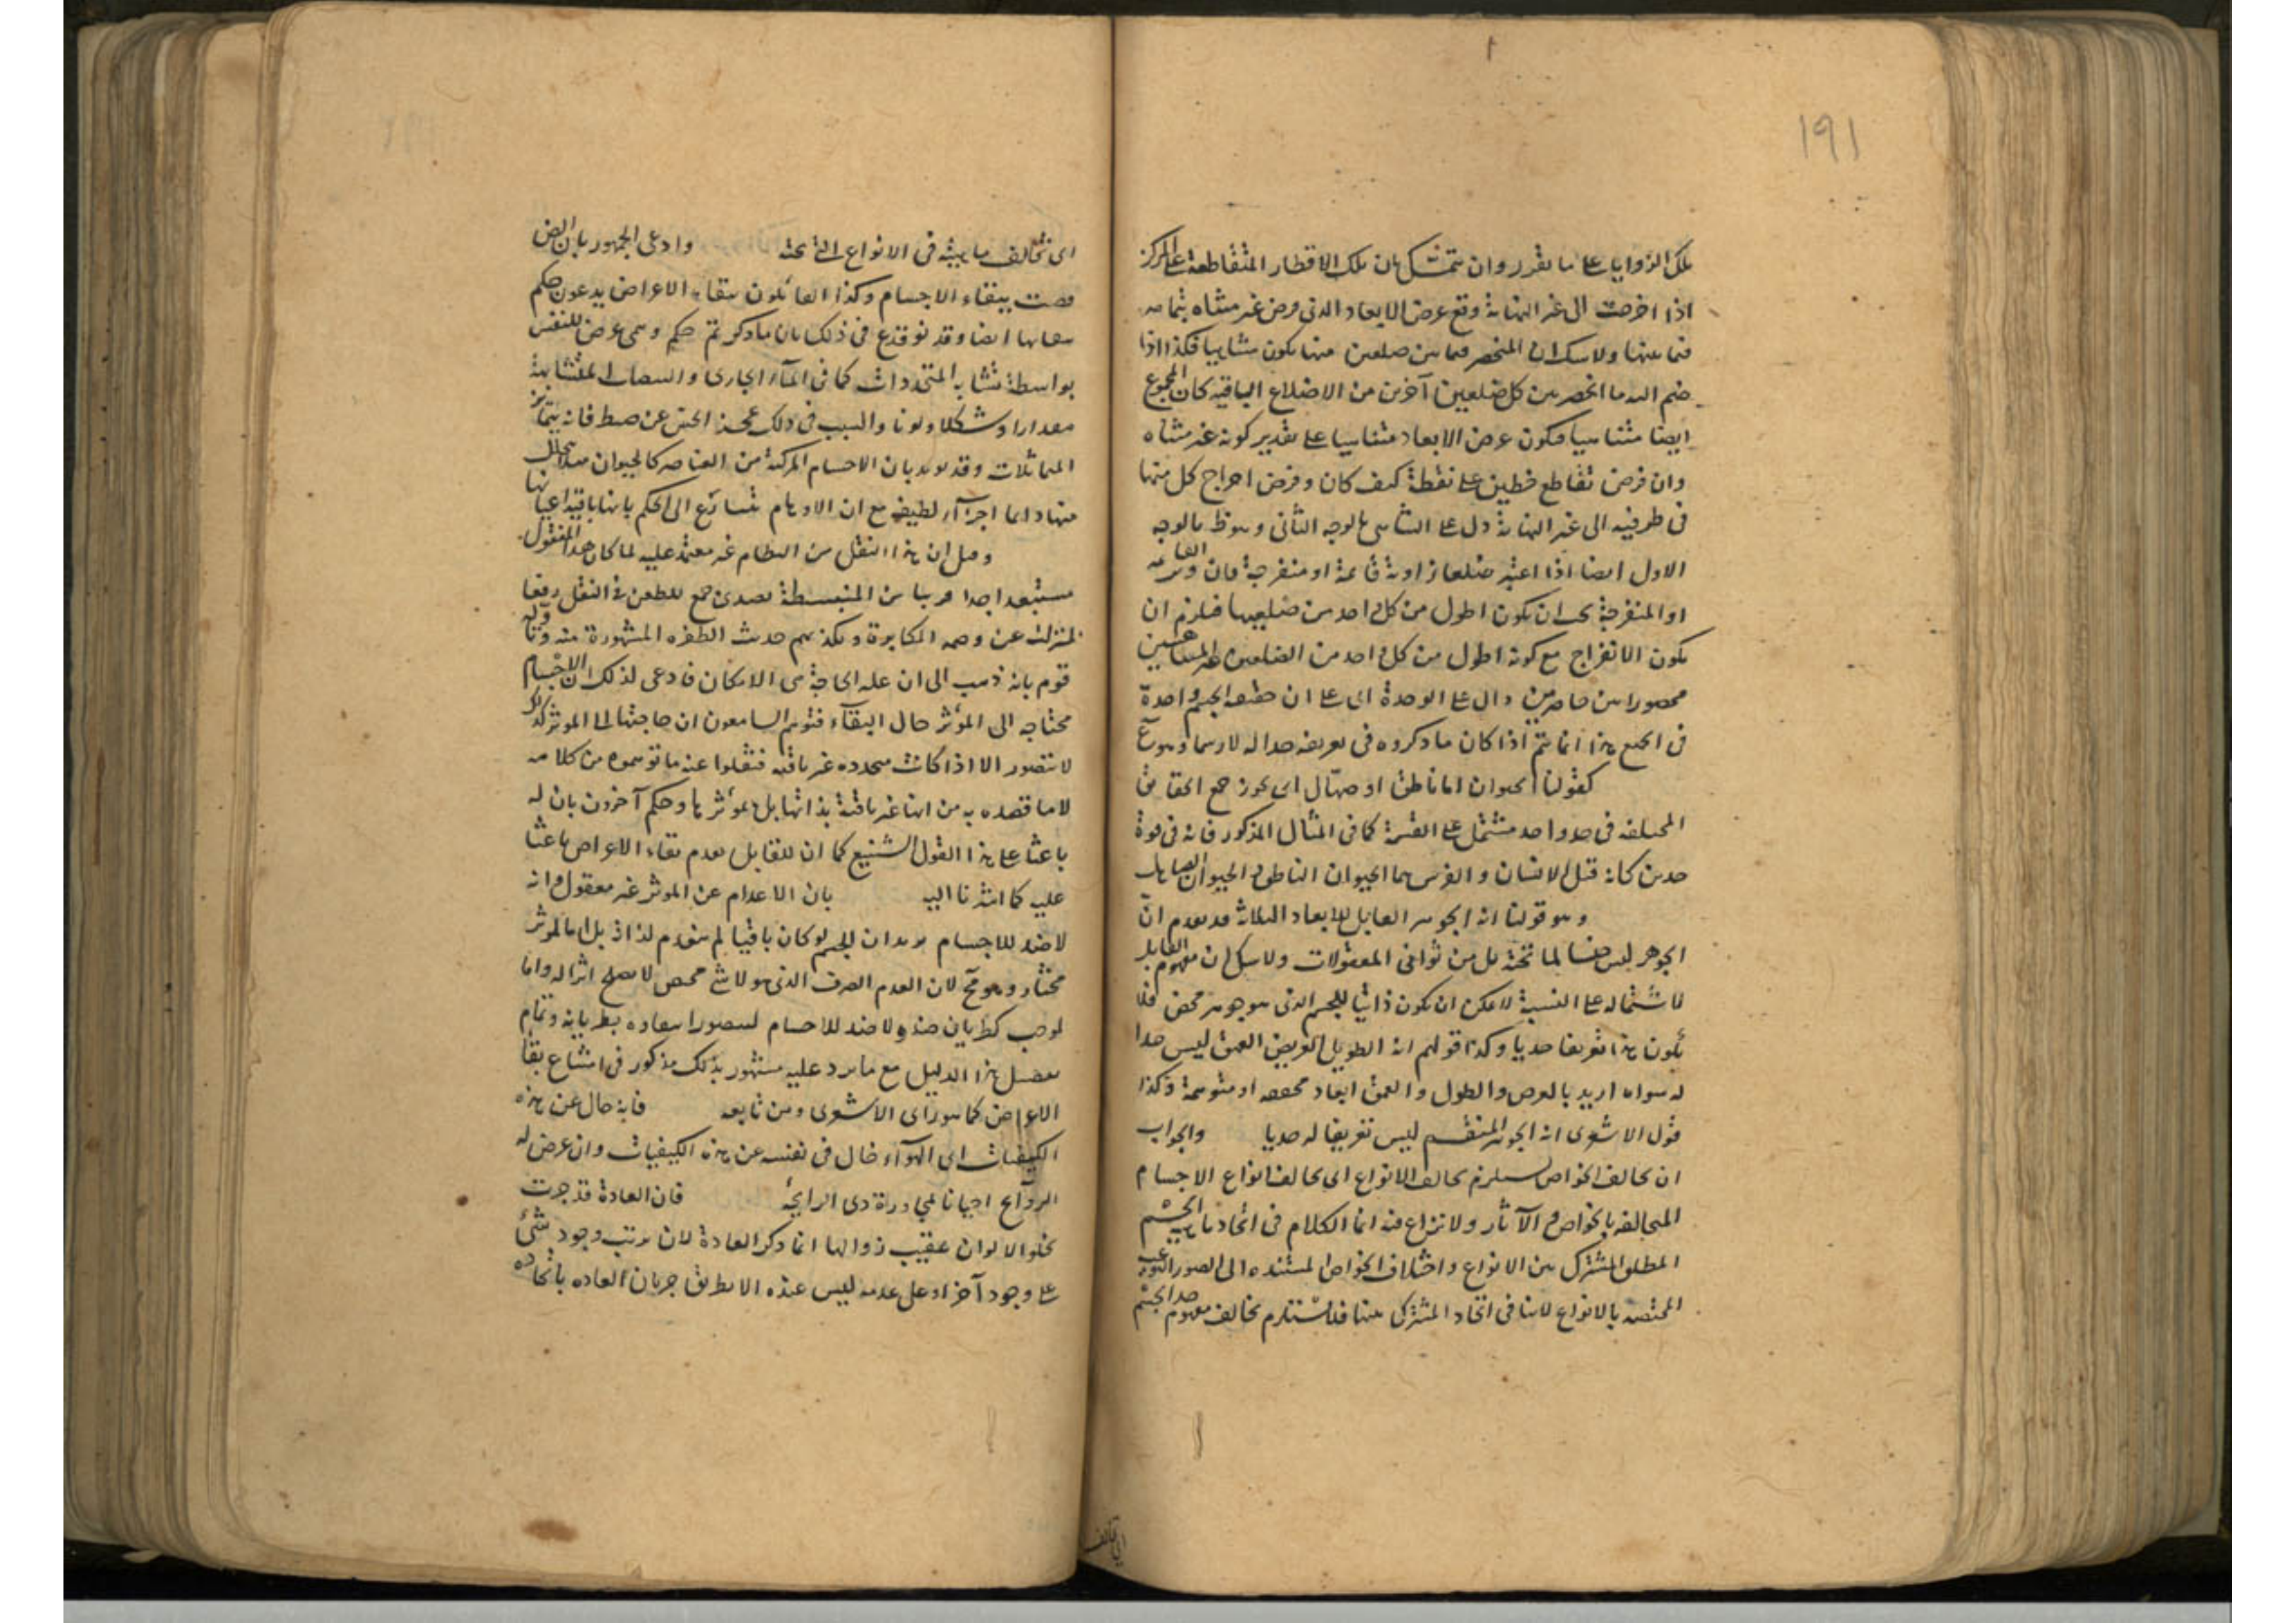 ١٩١
تلك الزوايا على ما تقرر وان تتمسك بان تلك الاقطار المتقاطعة على المركز
اذا اخرجت الى غير النهاية وقع عرض الابعاد الذى فرض غير متناه بتمامه
فيما بينها ولا شك ان المنحصر فيما بين ضلعين منها يكون متناهيا فكذا اذا
ضم اليه ما انحصر بين كل ضلعين آخرين من الاضلاع الباقية كان المجموع
ايضا متناهيا فيكون عرض الابعاد متناهيا على تقدير كونه غير متناه
وان فرض تقاطع خطين على نقطة كيف كان وفرض اخراج كل منهما
فى طرفيه الى غير النهاية دل على التناهى بالوجه الثانى وهو ظ بالوجه
الاول ايضا اذا اعتبر ضلعا زاوية قائمة او منفرجة فان وتر القائمة
او المنفرجة يجب ان يكون اطول من كل واحد من ضلعيها فيلزم ان
يكون الانفراج مع كونه اطول من كل واحد من الضلعين الغير المتناهيين
محصورا بين حاصرين دال على الوحدة اى على ان حقيقة الجسم واحدة
فى الجميع هذا انما يتم اذا كان ما ذكروه فى تعريفه حدا له لا رسما وهو مم
كقولنا الحيوان اما ناطق او صهّال اى يجوز جمع الحقائق
المختلفة فى حد واحد مشتمل على القسمة كما فى المثال المذكور فانه فى قوة
حدين كانه قيل الانسان والفرس هما الحيوان الناطق والحيوان الصاهل
وهو قولنا انه الجوهر القابل للابعاد الثلاثة قد تقدم انّ
الجوهر ليس جنسا لما تحته بل من ثوانى المعقولات ولا شك ان مفهوم القابل
لاشتماله على النسبة لا يمكن ان يكون ذاتيا للجسم الذى هو جوهر محض فلا
يكون هذا تعريفا حديا وكذا قولهم انه الطويل العريض العميق ليس حدا
له سواء اريد بالعرض والطول والعمق ابعاد محققة او متوهمة وكذا
قول الاشعرى انه الجوهر المنقسم ليس تعريفا له حديا والجواب
ان تخالف الخواص يستلزم تخالف الانواع اى تخالف انواع الاجسام
المتخالفة بالخواص والآثار ولا نزاع فيه انما الكلام فى اتحاد ماهية الجسم
المطلق المشترك بين الانواع واختلاف الخواص المستنده الى الصور النوعية
المختصه بالانواع لا ينافى اتحاد المشترك بينها فلا يستلزم تخالف مفهوم حد الجسم
اى تخالف
اى تخالف ماهيته فى الانواع التى تحته وادعى الجمهور بان الض
قضت ببقاء الاجسام وكذا القائلون ببقاء الاعراض يدعون حكم
ببقائها ايضا وقد نوقع فى ذلك بان ما ذكر تم حكم وهمى عرض للنفس
بواسطة تشابه المتجددات كما فى الماء الجارى والمتشابهة
مقدارا وشكلا ولونا والسبب فى ذلك عجز الحس عن ضبط فانه يتمايز
المتماثلات وقد يؤيد بان الاجسام المركبة من العناصر كالحيوان يتحلل
منها دائما اجزاء لطيفة مع ان الاوهام تتسارع الى الحكم بانها باقية اعيانها
وقيل ان هذا النقل من النظام غير معتمد عليه لما كان هذا المنقول
مستبعدا جدا قريبا من السفسطة تصدى جمع للطعن فى النقل رفعا
لمنزلته عن وصمة المكابرة ويكذبهم حديث الطفره المشهورة منه وأوّله
قوم بانه ذهب الى ان علة الحاجة هى الامكان فادعى لذلك ان الاجسام
محتاجه الى المؤثر حال البقآء فتوهم السامعون ان حاجتها الى المؤثر كذلك
لا تتصور الا اذا كانت متجدده غير باقيه فنقلوا عنه ما توهموه من كلامه
لا ما قصده به من انها غير باقية بذاتها بل بمؤثرها وحكم آخرون بان له
باعثا على هذا القول الشنيع كما ان للقايل بعدم بقاء الاعراض باعثا
عليه كما اشرنا اليه بان الاعدام عن المؤثر غير معقول وانه
لا ضد للاجسام يريد ان الجسم لو كان باقيا لم ينعدم لذاته بل اما لمؤثر
مختار وهو مح لان العدم الصرف الذى هو لا شئ محض لا يصلح اثرا له واما
لموجب كطريان ضد ولا ضد للاجسام ليتصور انتفاؤه بطريانه وتمام
تفصيل هذا الدليل مع ما يرد عليه مشهور بذلك مذكور فى امتناع بقاء
الاعراض كما هو راى الاشعرى ومن تابعه فانه خال عن هذه
الكيفيات اى الهوآء خال فى نفسه عن هذه الكيفيات وان عرض له
الروآئح احيانا لمجاورة ذى الرايحة فان العادة قد جرت
بخلو الالوان عقيب زوالها انما ذكر العادة لان ترتب وجود شئ
على وجود آخر او على عدمه ليس عنده الا بطريق جريان العاده باتحاده